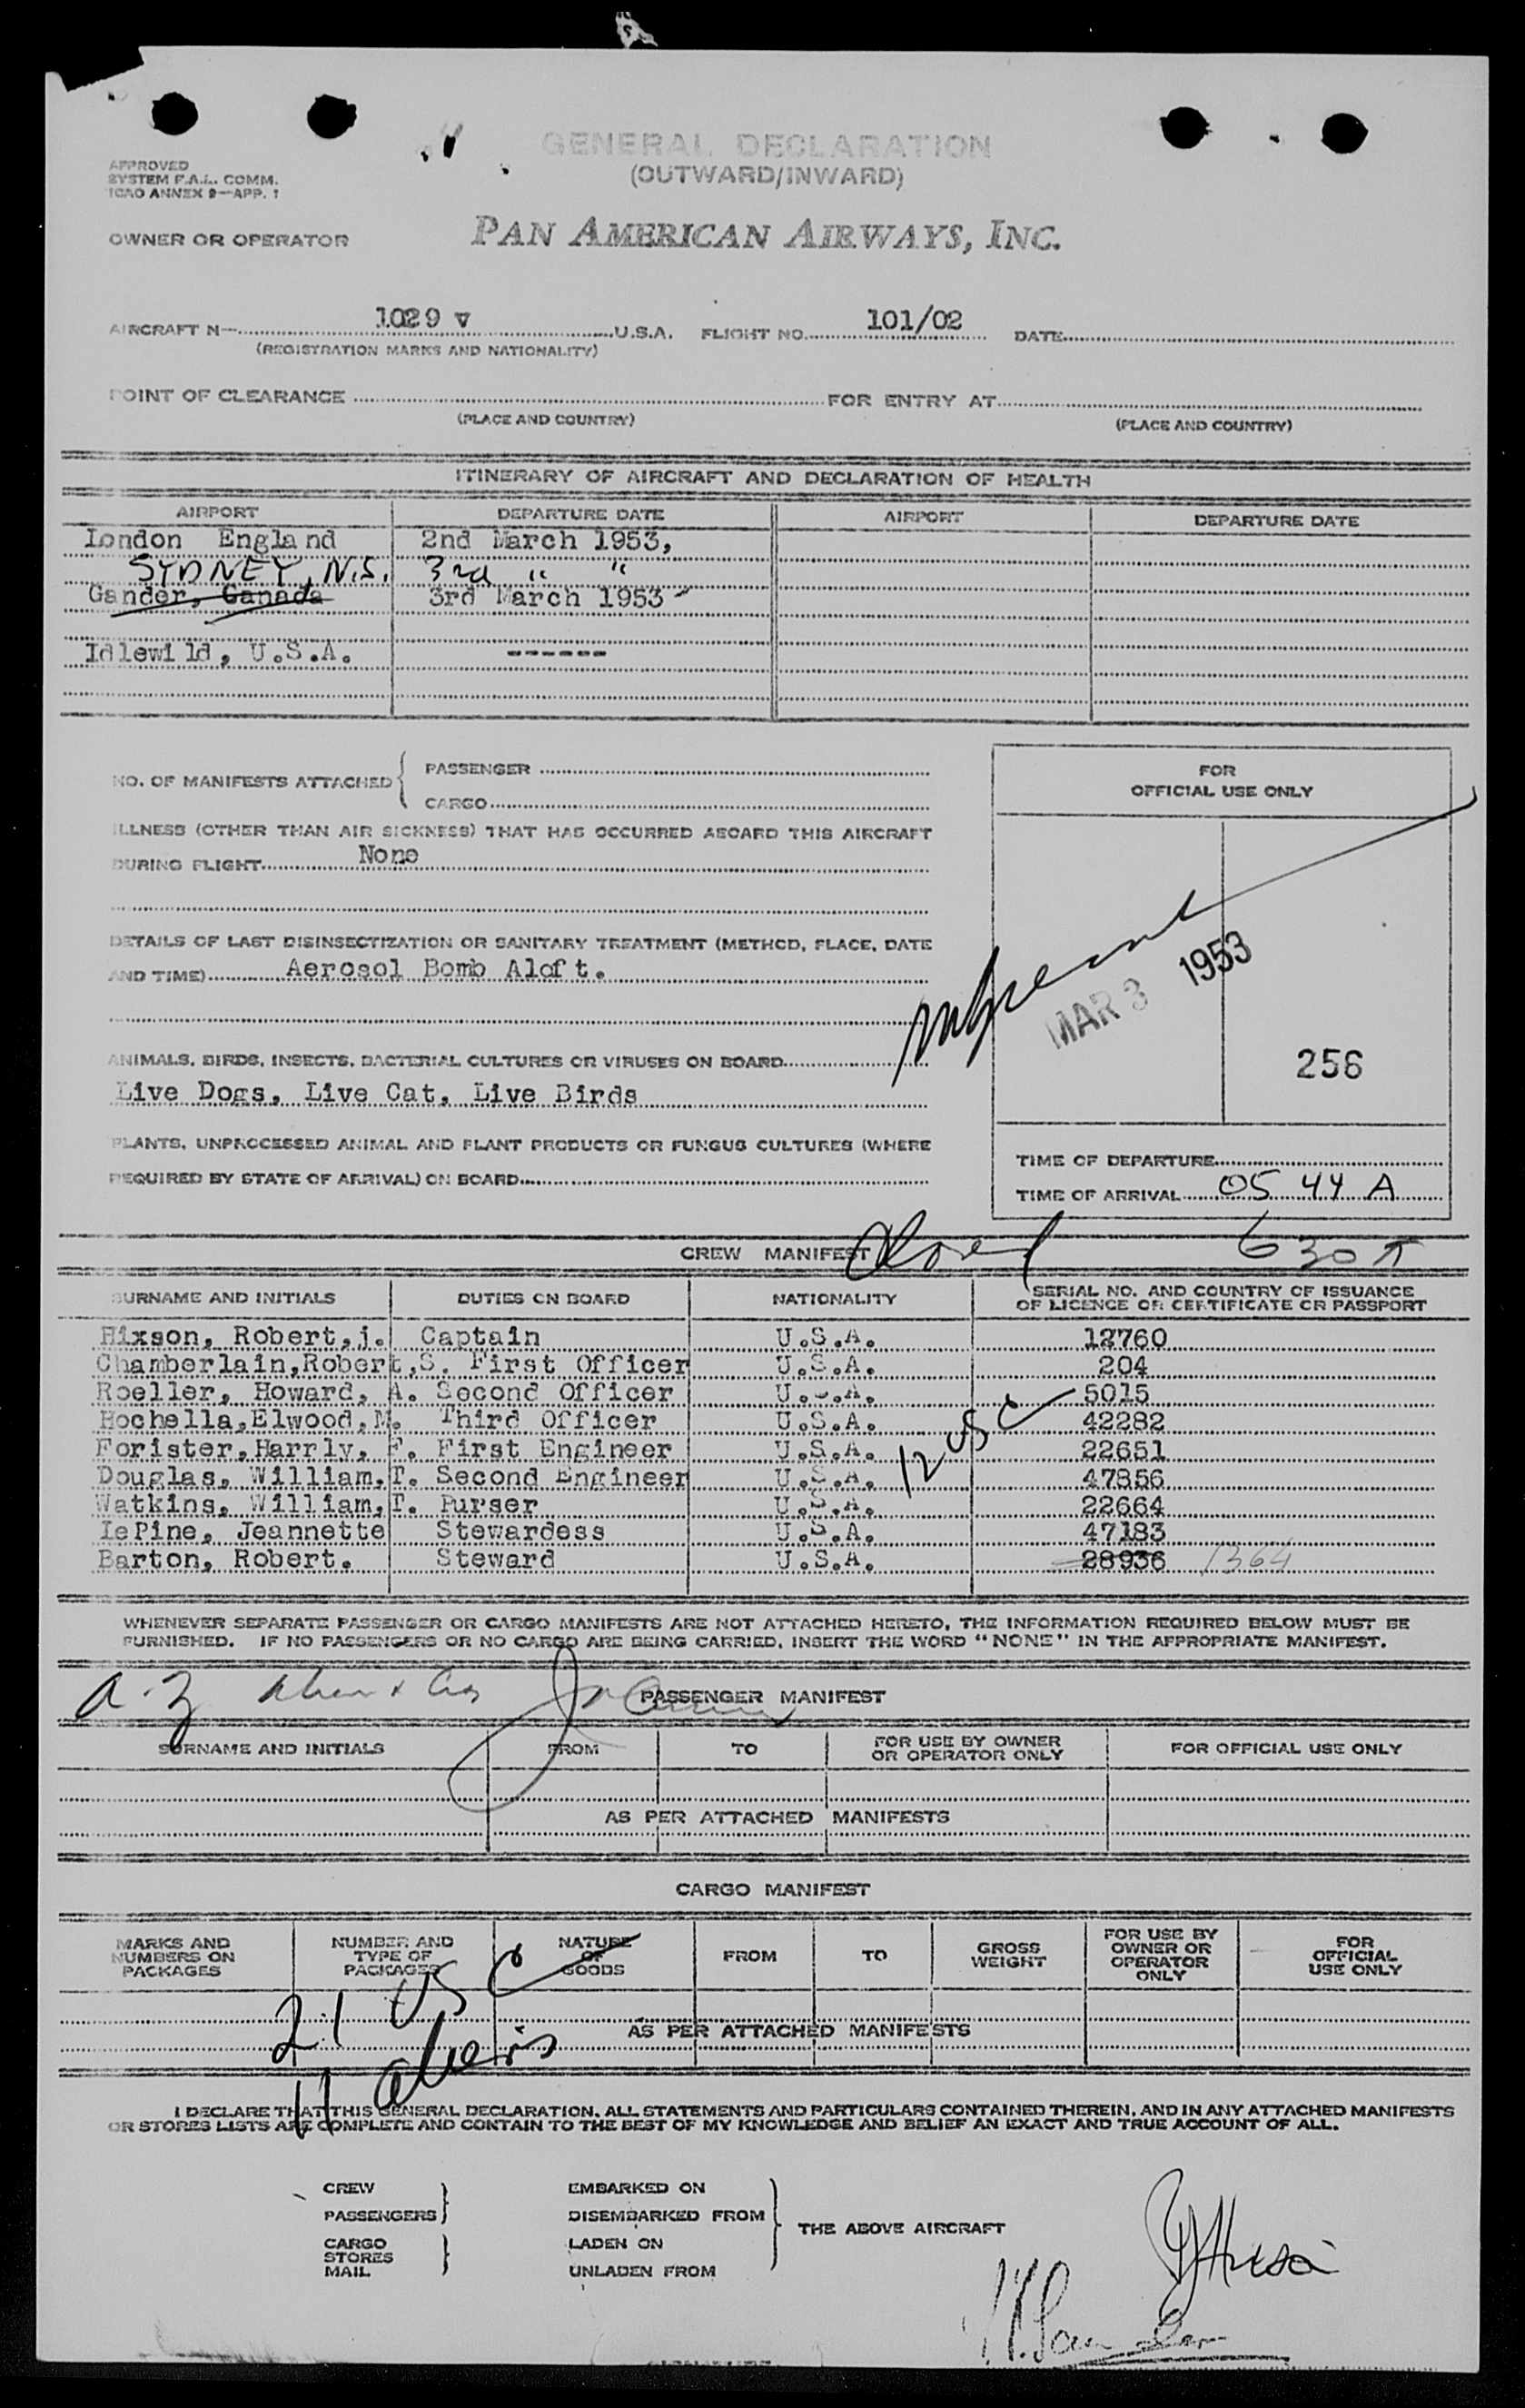 GENERAL DECLARATION
(OUTWARD/INWARD)
APPROVED
SYSTEM F.A.L. COMM.
ICAO ANNEX 9—APP. 1
OWNER OR OPERATOR PAN AMERICAN AIRWAYS, INC.
AIRCRAFT N— 1029 V U.S.A. FLIGHT NO. 101/02 DATE
(REGISTRATION MARKS AND NATIONALITY)
POINT OF CLEARANCE FOR ENTRY AT
(PLACE AND COUNTRY) (PLACE AND COUNTRY)
ITINERARY OF AIRCRAFT AND DECLARATION OF HEALTH
AIRPORT DEPARTURE DATE AIRPORT DEPARTURE DATE
London England 2nd March 1953,
SYDNEY, N.S. 3rd " "
Gander, Canada 3rd March 1953
Idlewild, U.S.A. ------
NO. OF MANIFESTS ATTACHED { PASSENGER
CARGO
ILLNESS (OTHER THAN AIR SICKNESS) THAT HAS OCCURRED ABOARD THIS AIRCRAFT
DURING FLIGHT None
DETAILS OF LAST DISINSECTIZATION OR SANITARY TREATMENT (METHOD, PLACE, DATE
AND TIME) Aerosol Bomb Aloft.
ANIMALS, BIRDS, INSECTS, BACTERIAL CULTURES OR VIRUSES ON BOARD
Live Dogs, Live Cat, Live Birds
PLANTS, UNPROCESSED ANIMAL AND PLANT PRODUCTS OR FUNGUS CULTURES (WHERE
REQUIRED BY STATE OF ARRIVAL) ON BOARD
FOR
OFFICIAL USE ONLY
MAR 3 1953
256
TIME OF DEPARTURE
TIME OF ARRIVAL 05 44 A
CREW MANIFEST Closed 630
SURNAME AND INITIALS DUTIES ON BOARD NATIONALITY SERIAL NO. AND COUNTRY OF ISSUANCE
OF LICENCE OR CERTIFICATE OR PASSPORT
Hixson, Robert,j. Captain U.S.A. 12760
Chamberlain,Robert,S. First Officer U.S.A. 204
Roeller, Howard, A. Second Officer U.S.A. 5015
Hochella,Elwood,M. Third Officer U.S.A. 42282
Forister,Harrly, F. First Engineer U.S.A. 22651
Douglas, William,T. Second Engineer U.S.A. 47856
Watkins, William,T. Purser U.S.A. 22664
LePine, Jeannette Stewardess U.S.A. 47183
Barton, Robert. Steward U.S.A. 28936 1364
12 USC
WHENEVER SEPARATE PASSENGER OR CARGO MANIFESTS ARE NOT ATTACHED HERETO, THE INFORMATION REQUIRED BELOW MUST BE
FURNISHED. IF NO PASSENGERS OR NO CARGO ARE BEING CARRIED, INSERT THE WORD "NONE" IN THE APPROPRIATE MANIFEST.
PASSENGER MANIFEST
SURNAME AND INITIALS FROM TO FOR USE BY OWNER
OR OPERATOR ONLY FOR OFFICIAL USE ONLY
AS PER ATTACHED MANIFESTS
CARGO MANIFEST
MARKS AND
NUMBERS ON
PACKAGES NUMBER AND
TYPE OF
PACKAGES NATURE
OF
GOODS FROM TO GROSS
WEIGHT FOR USE BY
OWNER OR
OPERATOR
ONLY FOR
OFFICIAL
USE ONLY
21 USC
AS PER ATTACHED MANIFESTS
11 aliens
I DECLARE THAT THIS GENERAL DECLARATION, ALL STATEMENTS AND PARTICULARS CONTAINED THEREIN, AND IN ANY ATTACHED MANIFESTS
OR STORES LISTS ARE COMPLETE AND CONTAIN TO THE BEST OF MY KNOWLEDGE AND BELIEF AN EXACT AND TRUE ACCOUNT OF ALL.
CREW EMBARKED ON
PASSENGERS DISEMBARKED FROM
THE ABOVE AIRCRAFT
CARGO LADEN ON
STORES
MAIL UNLADEN FROM